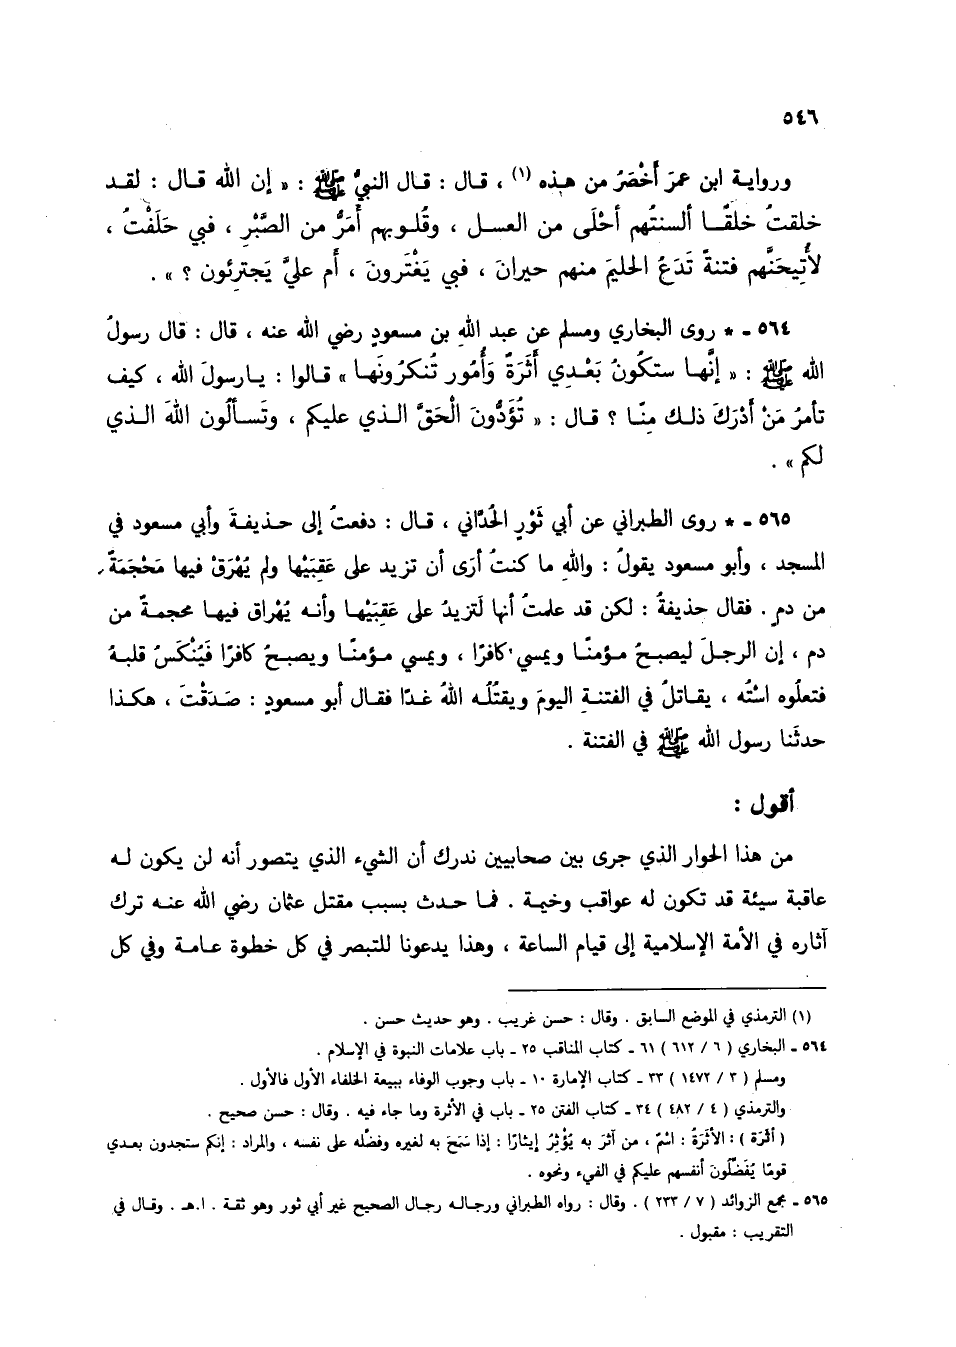 ٥٤٦
وروايـة ابن عمرَ أَخْصَرُ من هـذه (١) ، قـال : قـال النبيُّ ﷺ : « إن الله قـال : لقـد
خلقتُ خلقًـا ألسنتُهم أحْلَى من العسـل ، وقُلـوبهم أَمَرُّ من الصَّبْرِ ، فبي حَلَفْتُ ،
لأُتِيحَنَّهم فتنةً تَدَعُ الحليمَ منهم حيرانَ ، فبي يَغْتَرونَ ، أم عليَّ يَجترِئون ؟ » .
٥٦٤ ـ * روى البخاري ومسلم عن عبد اللهِ بن مسعودٍ رضي الله عنه ، قال : قال رسولُ
الله ﷺ : « إنَّهـا ستكُونُ بَعْـدِي أَثَرَةٌ وَأُمُور تُنكرُونَهـا » قـالوا : يـارسولَ الله ، كيف
تأمرُ مَنْ أَدْرَكَ ذلـك مِنّـا ؟ قـال : « تُؤَدُّونَ الْحَقَّ الـذي عليكم ، وتَسـألُون اللهَ الـذي
لكم » .
٥٦٥ ـ * روى الطبراني عن أبي ثَوْرٍ الحُدّاني ، قـال : دفعتُ إلى حـذيفـةَ وأبي مسعود في
المسجد ، وأبو مسعود يقولُ : واللهِ ما كنتُ أرَى أن تزيد على عَقِبَيْها ولم يُهْرَقْ فيها مَحْجَمَةٌ
من دمٍ . فقال حذيفةُ : لكن قد علمتُ أنها لَتزيدُ على عَقِبَيْهـا وأنـه يُهْراق فيهـا محجمـةٌ من
دم ، إن الرجـلَ ليصبـحُ مـؤمنًـا ويمسي كافرًا ، ويمسي مـؤمنًـا ويصبـحُ كافرًا فَيُنْكَسُ قلبـهُ
فتعلُوه اسْتُه ، يقـاتلُ في الفتنـةِ اليومَ ويقتُلُـه اللهُ غـدًا فقـال أبو مسعودٍ : صَـدَقْتَ ، هكـذا
حدثَنا رسول الله ﷺ في الفتنة .
أقول :
من هذا الحوار الذي جرى بين صحابيين ندرك أن الشيء الذي يتصور أنه لن يكون لـه
عاقبة سيئة قد تكون له عواقب وخيمة . فمـا حـدث بسبب مقتل عثمان رضي الله عنـه ترك
آثاره في الأمة الإسلامية إلى قيام الساعة ، وهذا يدعونا للتبصر في كل خطوة عـامـة وفي كل
(١) الترمذي في الموضع السـابق . وقال : حسن غريب . وهو حديث حسن .
٥٦٤ ـ البخاري ( ٦ / ٦١٢ ) ٦١ ـ كتاب المناقب ٢٥ ـ باب علامات النبوة في الإسلام .
ومسلم ( ٣ / ١٤٧٢ ) ٣٣ ـ كتاب الإمارة ١٠ ـ باب وجوب الوفاء ببيعة الخلفاء الأول فالأول .
والترمذي ( ٤ / ٤٨٢ ) ٣٤ ـ كتاب الفتن ٢٥ ـ باب في الأثرة وما جاء فيه . وقال : حسن صحيح .
( أَثَرَة ) : الأثَرَةُ : اسْمٌ ، من آثرَ به يُؤْثِرُ إيثارًا : إذا سَمَحَ به لغيره وفضَّله على نفسه ، والمراد : إنكم ستجدون بعـدي
قومًا يُفَضِّلُونَ أنفسهم عليكم في الفيء ونحوه .
٥٦٥ ـ مجمع الزوائد ( ٧ / ٢٣٣ ) . وقال : رواه الطبراني ورجـالـه رجـال الصحيح غير أبي ثور وهو ثقـة . ا.هـ . وقـال في
التقريب : مقبول .